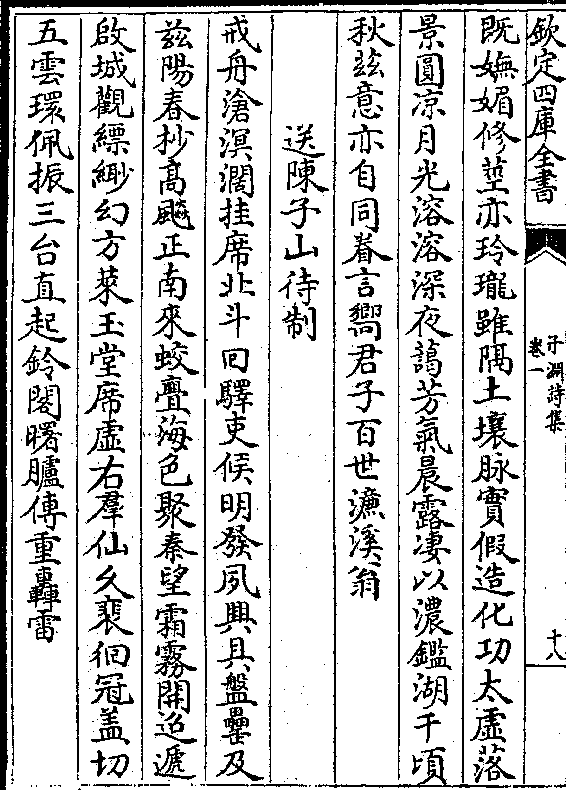 欽定四庫全書
子淵詩集
卷一
十八
既嫵媚修莖亦玲瓏雖隔土壤脉實假造化功太虛落
景圓凉月光溶溶深夜藹芳氣晨露凄以濃鑑湖千頃
秋兹意亦自同眷言嚮君子百世濂溪翁
送陳子山待制
戒舟滄溟濶挂席北斗回驛吏候明發夙興具盤罍及
兹陽春抄高飈正南來蛟亹海色聚秦望霜霧開迢遞
啟城觀縹緲幻方萊玉堂席虛右羣仙久裴徊冠盖切
五雲環佩振三台直起鈴閣曙臚傳重轟雷